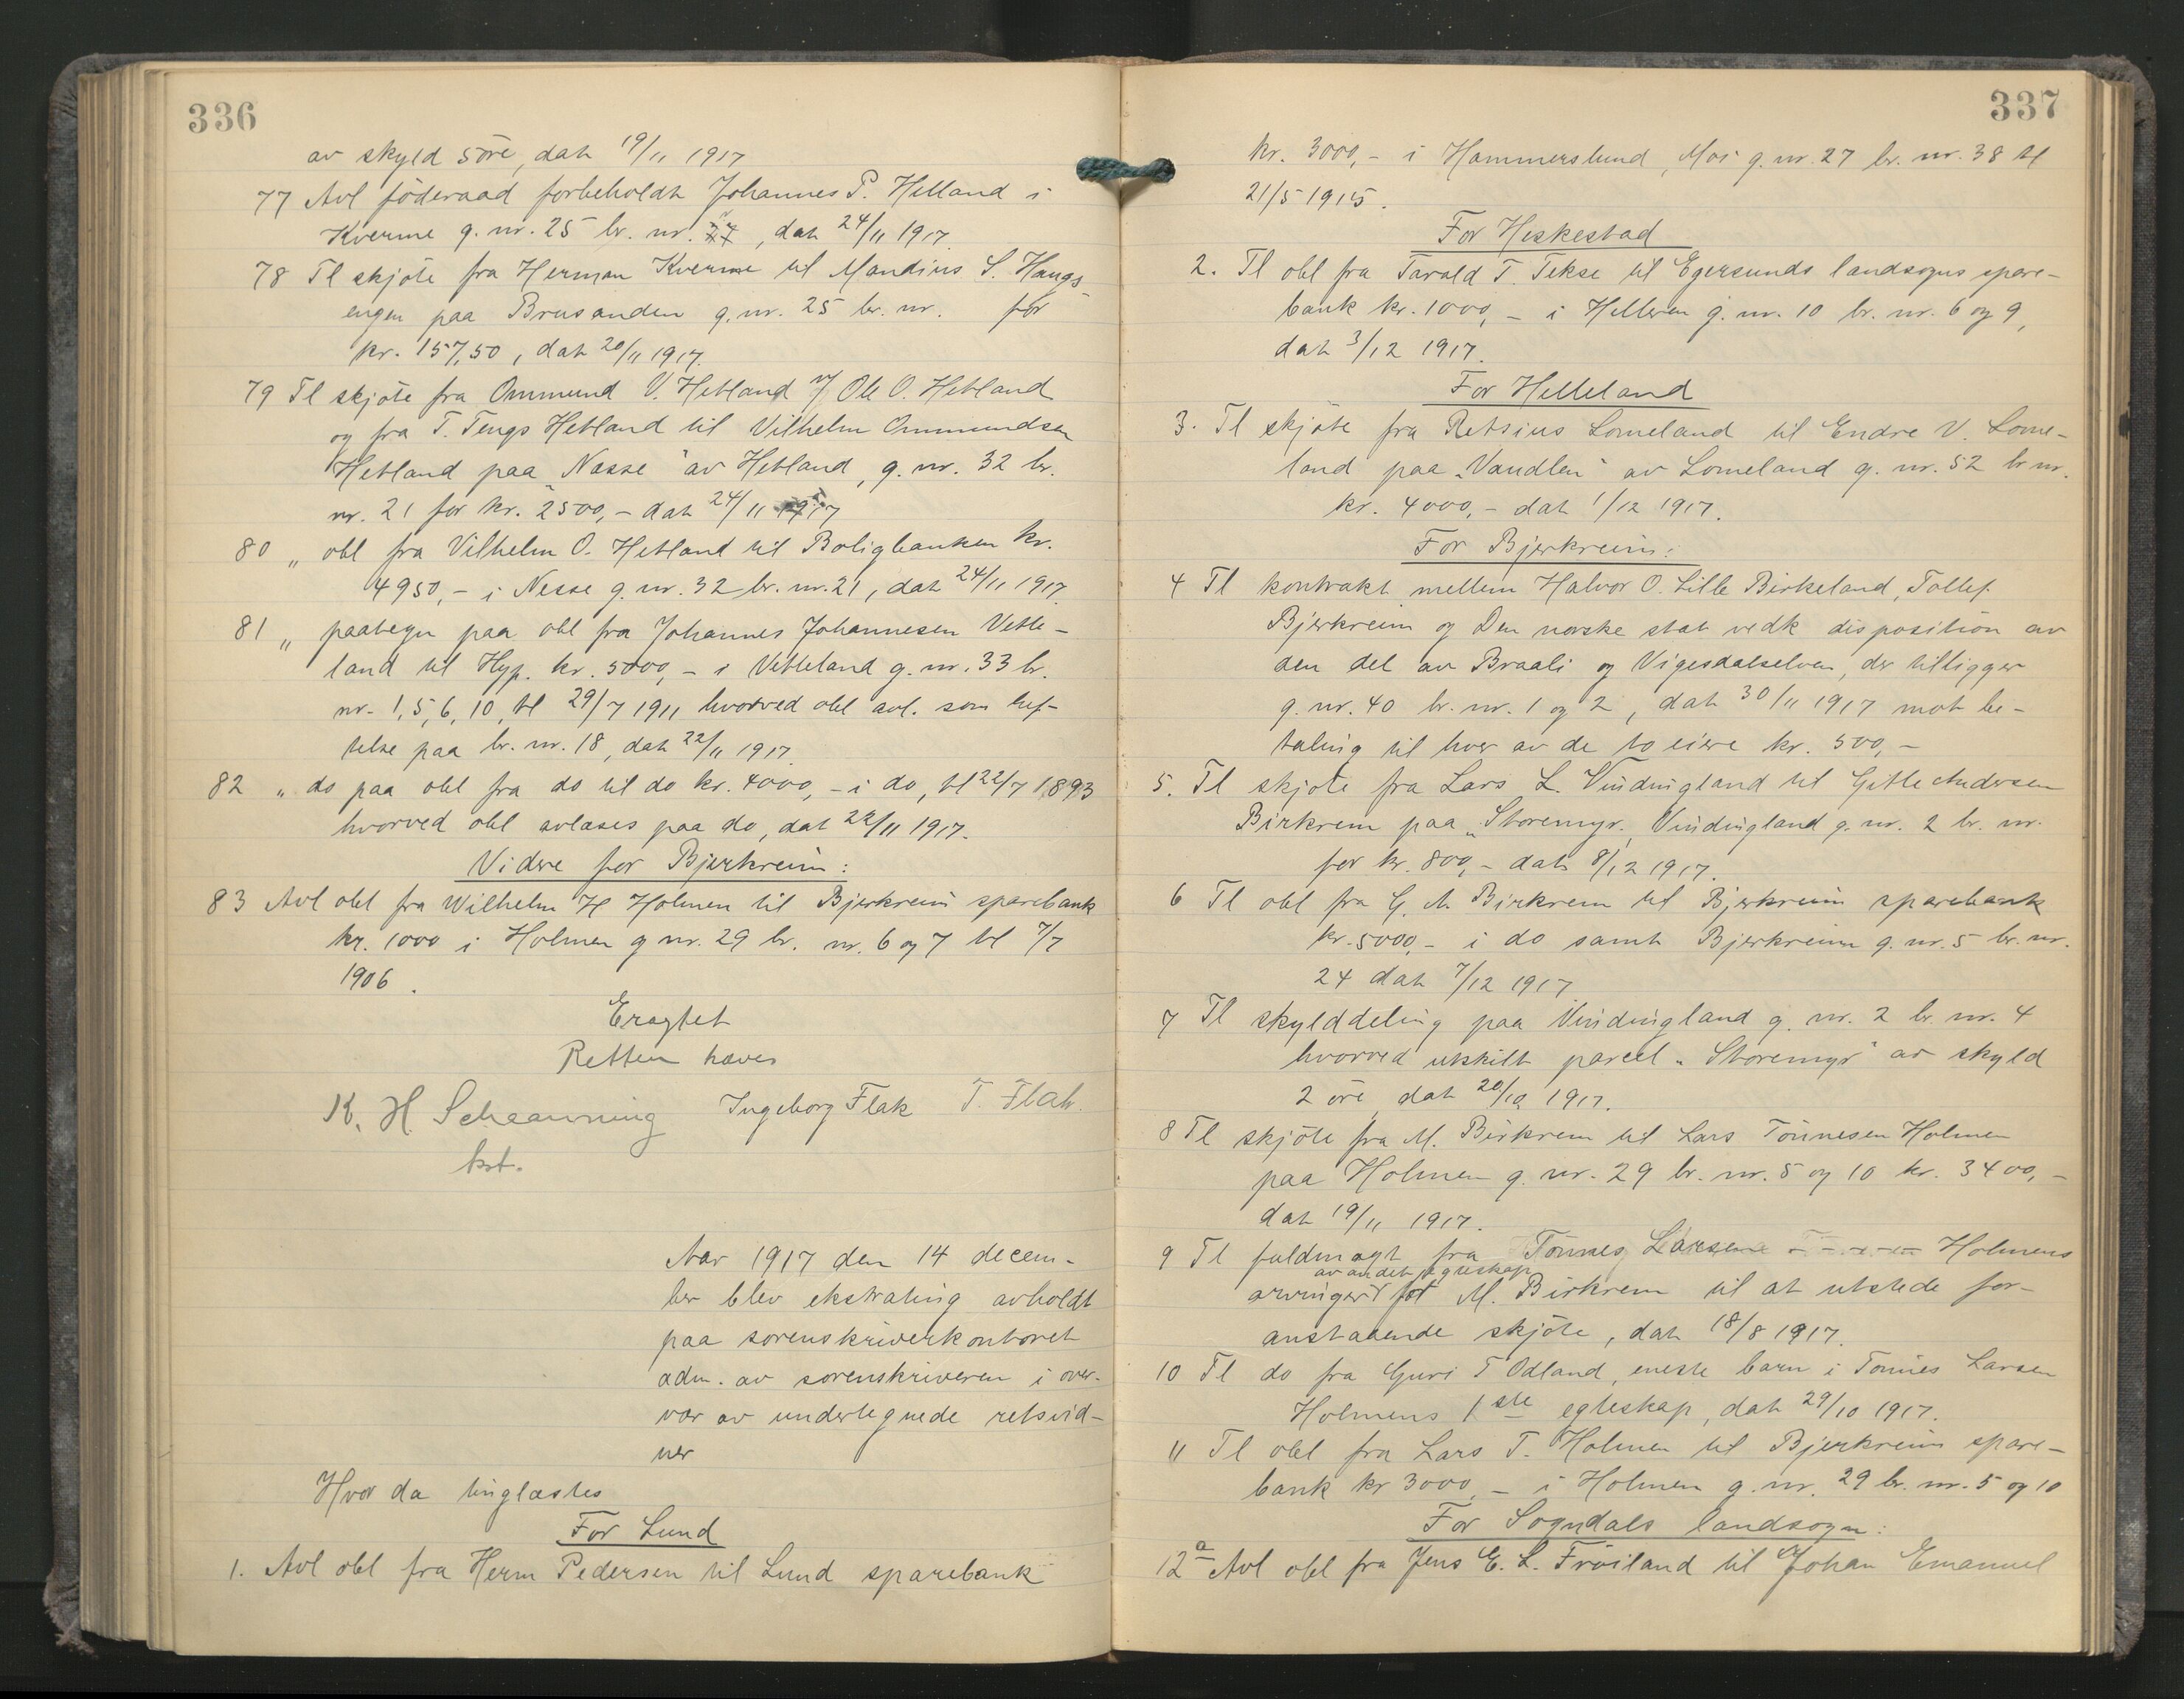 336
av skyld 5 øre, dat 19/11 1917
77 Avl föderaad forbeholdt Johannes P. Helland i
Kverme g. nr. 25 br. nr. , dat 24/11 1917
78 Tl skjöte fra Herman Kverme til Mandius S. Haugs-
engen paa Brusanden g. nr. 25 br. nr. for
kr. 157,50, dat 20/11 1917.
79 Tl skjöte fra Ommund V. Hetland v/ Ole O. Hetland
og fra T. Tengs Hetland til Vilhelm Ommundsen
Hetland paa „Næsse" av Hetland, g. nr. 32 br.
nr. 21 for kr. 2500,- dat 24/11 1917
80 „ obl fra Vilhelm O. Hetland til Boligbanken kr.
4950,- i Nesse g. nr. 32 br. nr. 21, dat 24/11 1917.
81 „ paategn paa obl fra Johannes Johannesen Vetle-
land til Hyp. kr. 5000,- i Vetleland g. nr. 33 br.
nr. 1, 5, 6, 10, tl 29/7 1911 hvorved obl avl. som hef-
telse paa br. nr. 18, dat 22/11 1917.
82 „ do paa obl fra do til do kr. 4000,- i do, tl 22/7 1893
hvorved obl avlæses paa do, dat 22/11 1917.
Videre for Bjerkreim:
83 Avl obl fra Wilhelm H Holmen til Bjerkreim sparebank
kr. 1000 i Holmen g nr. 29 br. nr. 6 og 7 tl 7/7
1906.
Eragtet
Retten hæves
K. H. Scheanning Ingeborg Flak T. Flak.
kst.
Aar 1917 den 14 decem-
ber blev ekstrating avholdt
paa sorenskriverkontoret
adm. av sorenskriveren i over-
vær av undertegnede retsvid-
ner
Hvor da tinglæstes
For Lund
1. Avl obl fra Herm Pedersen til Lund sparebank
337
kr. 3000,- i Hammerslund, Moi g. nr. 27 br. nr. 38 tl
21/5 1915.
For Heskestad
2. Tl obl fra Tarald T. Tekse til Egersunds landsogns spare-
bank kr. 1000,- i Helleren g. nr. 10 br. nr. 6 og 9,
dat 3/12 1917.
For Helleland
3. Tl skjöte fra Retsius Lomeland til Endre V. Lome-
land paa „Vandlen" av Lomeland g. nr. 52 br nr.
kr. 4000,- dat 1/12 1917.
For Bjerkreim:
4 Tl kontrakt mellem Halvor O. Lille Birkeland, Tollef
Bjerkreim og Den norske stat vedk disposition av
den del av Braali og Vigesdalselven, der tilligger
g. nr. 40 br. nr. 1 og 2, dat 30/11 1917 mot be-
taling til hver av de to eiere kr. 500,-
5. Tl skjöte fra Lars L. Vindingland til Gitle Andersen
Birkrem paa „Storemyr" Vindingland g. nr. 2 br. nr.
for kr. 800,- dat 8/12 1917.
6 Tl obl fra G. A. Birkrem til Bjerkreim sparebank
kr. 5000,- i do samt Bjerkreim g. nr. 5 br. nr.
24 dat 7/12 1917
7 Tl skylddeling paa Vindingland g. nr. 2 br. nr. 4
hvorved utskilt parcel „Storemyr" av skyld
2 öre dat 20/10 1917.
8 Tl skjöte fra M. Birkrem til Lars Tönnesen Holmen
paa Holmen g. nr. 29 br. nr. 5 og 10 kr. 3400,-
dat 19/11 1917.
9 Tl fuldmagt fra Tönnes Larsen Holmens
av andet egteskap
arvinger for M. Birkrem til at utstede for-
anstaaende skjöte, dat 18/8 1917.
10 Tl do fra Guri T Odland, eneste barn i Tönnes Larsen
Holmens 1ste egteskap, dat 29/10 1917.
11 Tl obl fra Lars T. Holmen til Bjerkreim spare-
bank kr 3000,- i Holmen g. nr. 29 br. nr. 5 og 10
For Sogndals landsogn:
12a Avl obl fra Jens E. L. Fröiland til Johan Emanuel